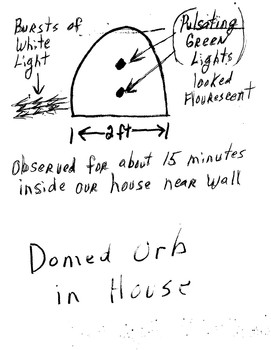 Bursts of
White
Light
Pulsating
GREEN
Lights
looked
Flourescent
2ft
Observed for about 15 minutes
inside our house near wall
Domed Orb
in House